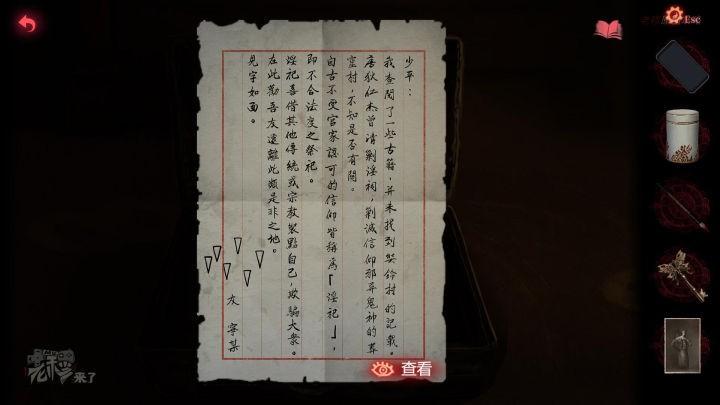 少平：
我查閱了一些古籍，并未找到奘鈴村的記載。
唐狄仁杰曾清剿淫祠，剿滅信仰邪异鬼神的葬
窟村，不知是否有關。
自古不受官家認可的信仰皆稱爲「淫祀」，
即不合法度之祭祀。
淫祀喜借其他傳統或宗教裝點自己，欺騙大衆。
在此勸吾友遠離此類是非之地。
見字如面。
友 寧某
查看
Esc
來了